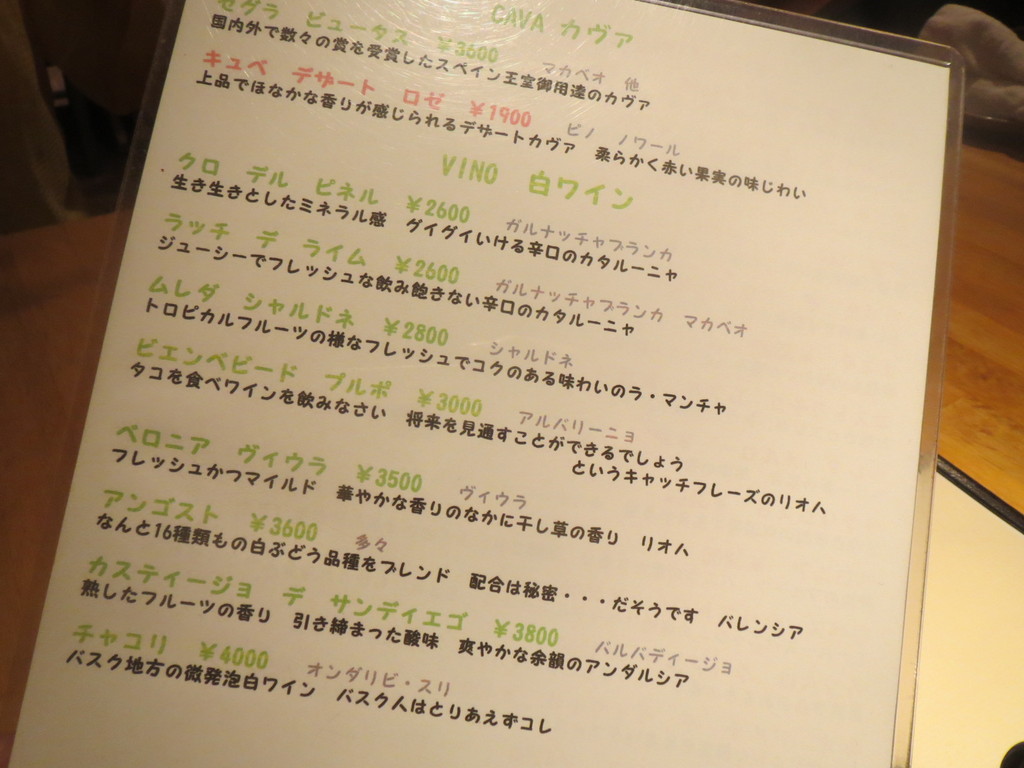 CAVA カヴァ
セグラ ビュータス ¥3600 マカベオ 他
国内外で数々の賞を受賞したスペイン王室御用達のカヴァ
キュベ デザート ロゼ ¥1900 ピノ ノワール
上品でほなかな香りが感じられるデザートカヴァ 柔らかく赤い果実の味じわい
VINO 白ワイン
クロ デル ピネル ¥2600 ガルナッチャブランカ
生き生きとしたミネラル感 グイグイいける辛口のカタルーニャ
ラッチ デ ライム ¥2600 ガルナッチャブランカ マカベオ
ジューシーでフレッシュな飲み飽きない辛口のカタルーニャ
ムレダ シャルドネ ¥2800 シャルドネ
トロピカルフルーツの様なフレッシュでコクのある味わいのラ・マンチャ
ビエンベビード プルポ ¥3000 アルバリーニョ
タコを食べワインを飲みなさい 将来を見通すことができるでしょう
というキャッチフレーズのリオハ
ベロニア ヴィウラ ¥3500 ヴィウラ
フレッシュかつマイルド 華やかな香りのなかに干し草の香り リオハ
アンゴスト ¥3600 多々
なんと16種類もの白ぶどう品種をブレンド 配合は秘密・・・だそうです バレンシア
カスティージョ デ サンディエゴ ¥3800 パルパディージョ
熟したフルーツの香り 引き締まった酸味 爽やかな余韻のアンダルシア
チャコリ ¥4000 オンダリビ・スリ
バスク地方の微発泡白ワイン バスク人はとりあえずコレ